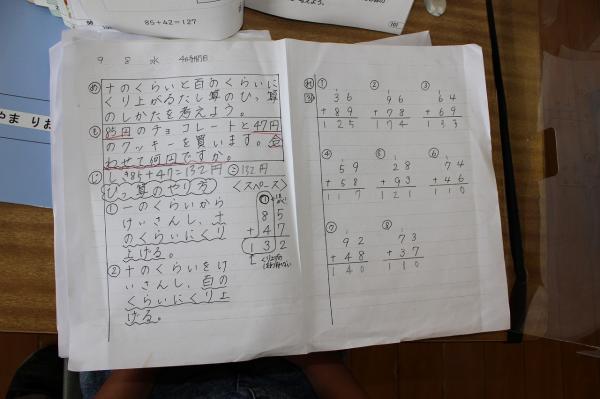 85+42=127
9 8 水 4時間目
め 十のくらいと百のくらいに
くり上がるたし算のひっ算
のしかたを考えよう。
も 85円のチョコレートと47円
のクッキーを買います。合
わせて何円ですか。
し 85+47=132円 132円
ひっ算のやり方
<スペース>
① 一のくらいから
けいさんし、十
のくらいにくり
上げる。
② 十のくらいをけ
いさんし、百の
くらいにくり上
げる。
1
85
+47
132
①
1
36
+89
125
②
1
96
+78
174
③
1
64
+69
133
④
1
59
+58
117
⑤
1
28
+93
121
⑥
1
74
+46
110
⑦
1
92
+48
140
⑧
1
73
+37
110
やま りお